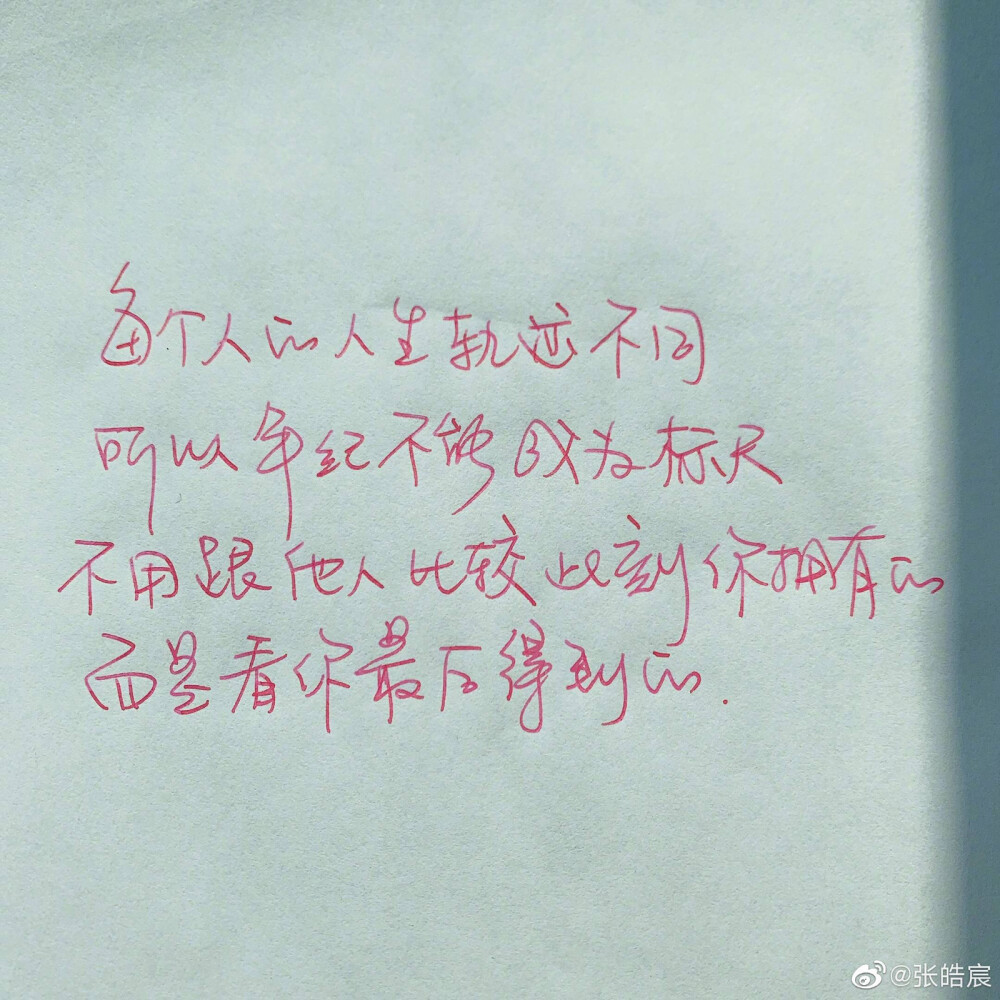 每个人的人生轨迹不同
所以年纪不能成为标尺
不用跟他人比较此刻你拥有的
而是看你最后得到的.
@张皓宸